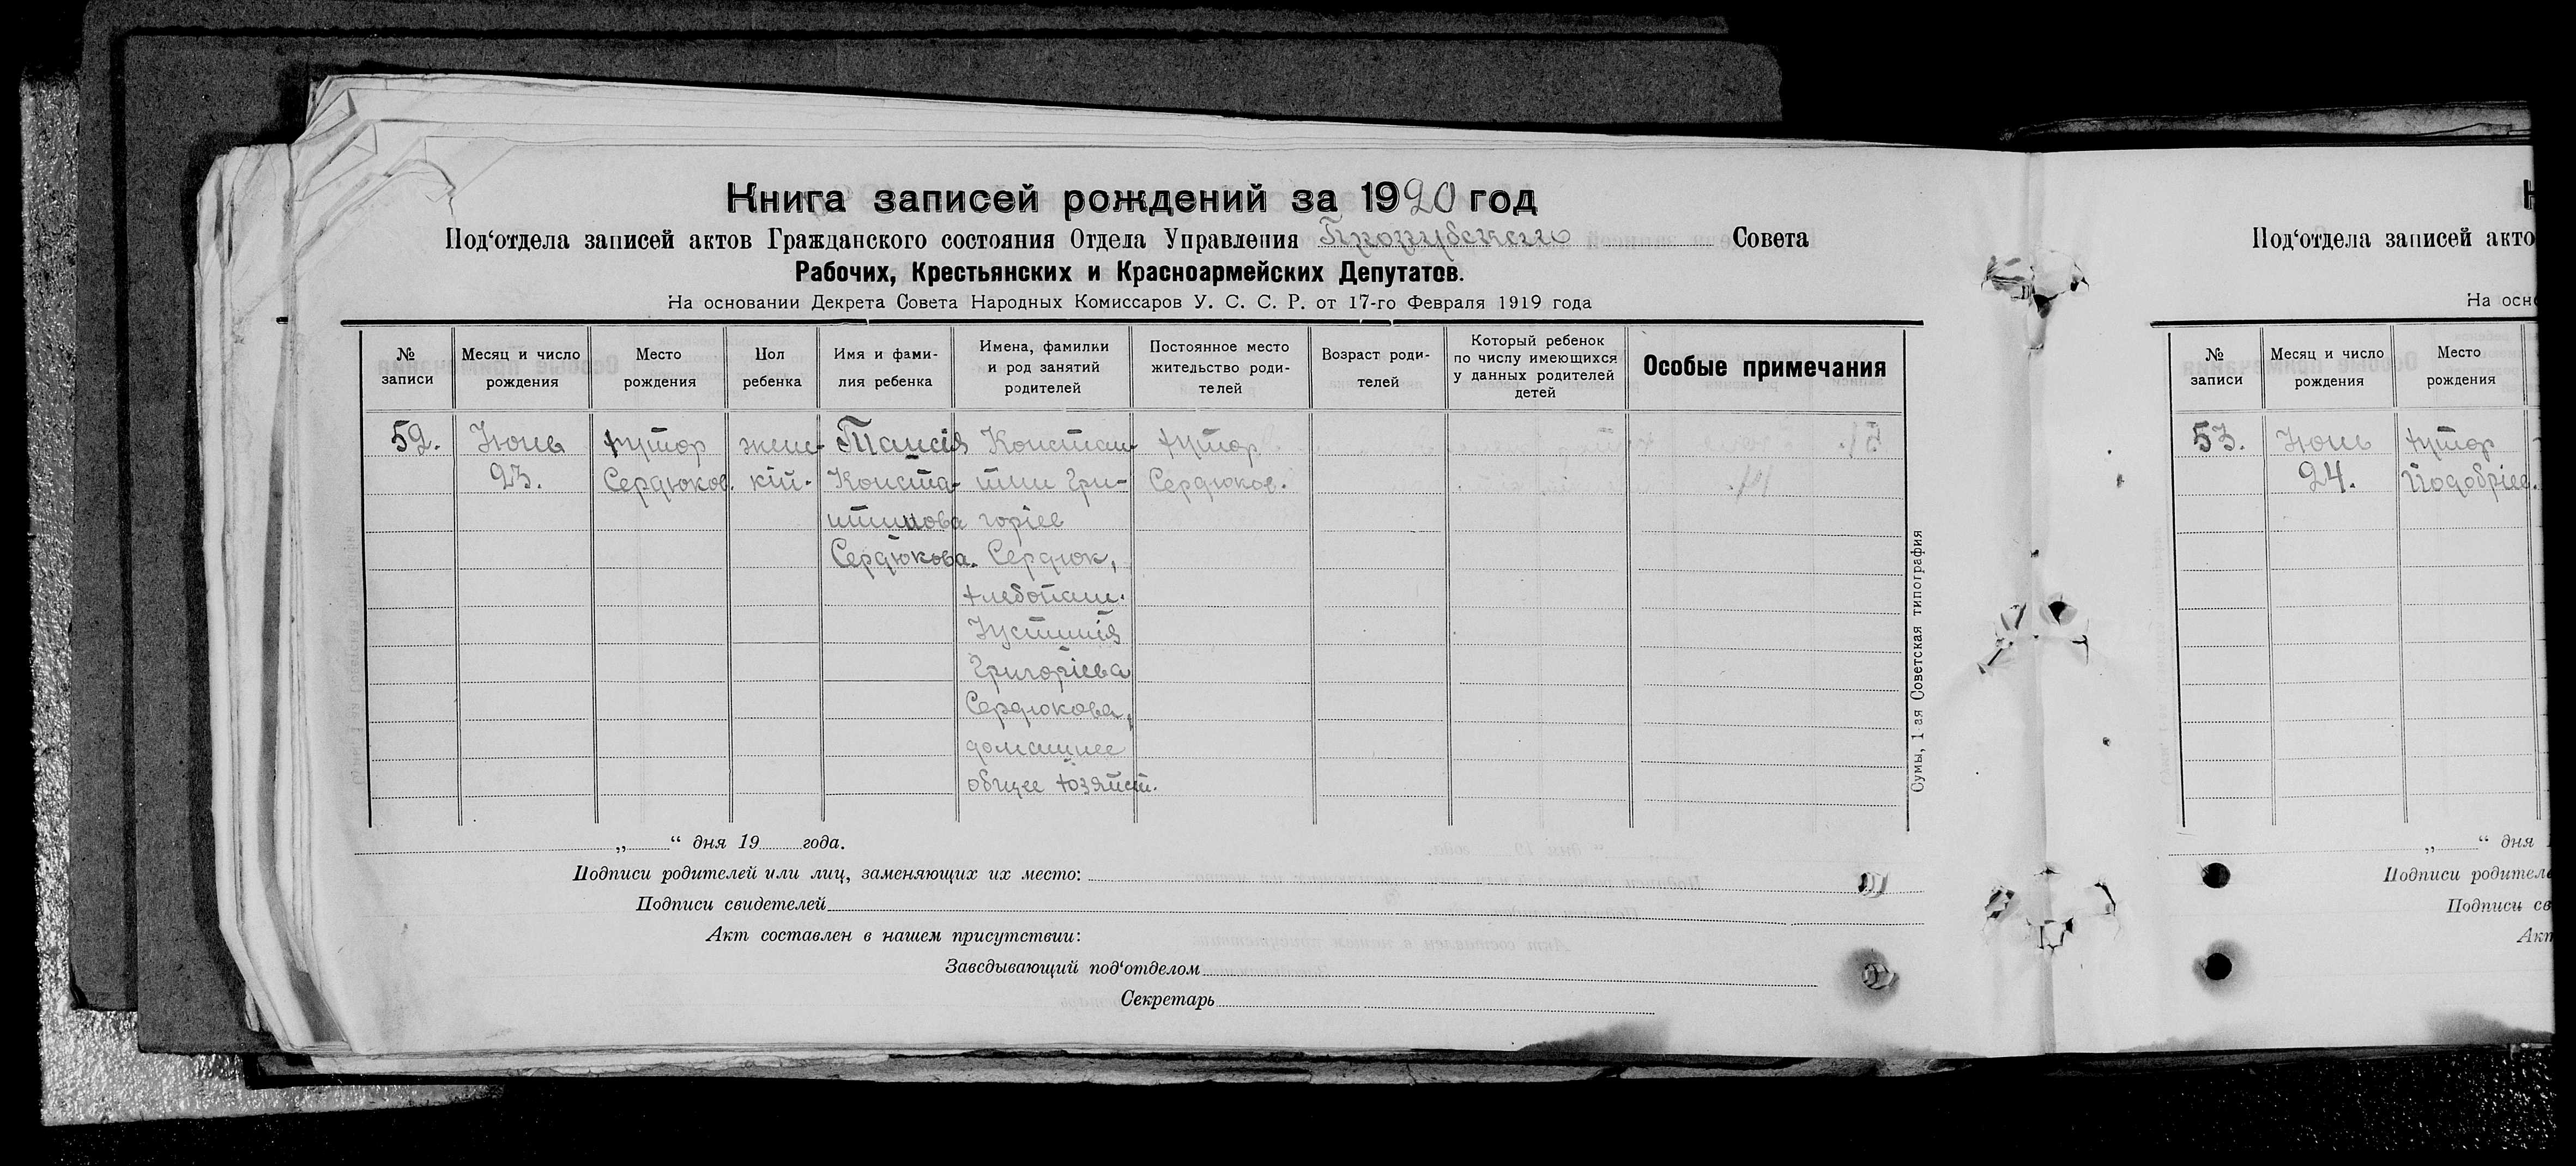 Книга записей рождений за 1920 год
Под‘отдела записей актов Гражданского состояния Отдела Управления Совета
Рабочих, Крестьянских и Красноармейских Депутатов.
На основании Декрета Совета Народных Комиссаров У. С. С. Р. от 17-го Февраля 1919 года
№ записи
Месяц и число рождения
Место рождения
Пол ребенка
Имя и фами-
лия ребенка
Имена, фамилии
и род занятий
родителей
Постоянное место
жительство роди-
телей
Возраст роди-
телей
Который ребенок
по числу имеющихся
у данных родителей
детей
Особые примечания
52.
Июнь
23.
хутор
Сердюков.
женс-
кій.
Таисія
Конста-
нтинова
Сердюкова.
Констан-
тин Гри-
горіев
Сердюк,
хлебопаш.
Іустинія
Григоріева
Сердюкова,
домашнее
общее хозяйст.
хутор
Сердюков.
„ “ дня 19 года.
Подписи родителей или лиц, заменяющих их место:
Подписи свидетелей
Акт составлен в нашем присутствии:
Заведывающий под‘отделом
Секретарь
Сумы, 1-ая Советская типография
Под‘отдела записей акто
На осн
№ записи
Месяц и число рождения
Место рождения
53.
Июнь
24.
хутор
„ “ дня
Подписи родител
Подписи св
Ак